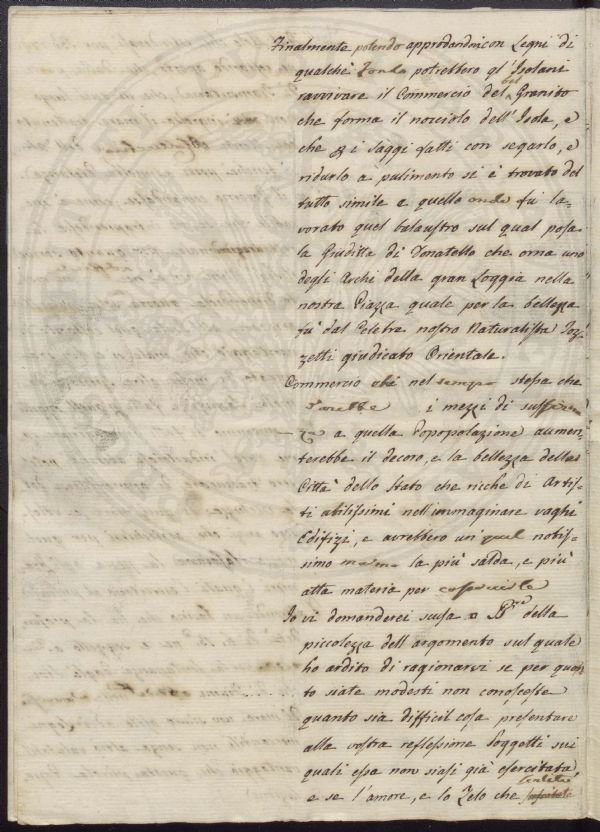 Finalmente potendo approdandovi con Legni di
qualche portata potrebbero gl' Isolani
ravvivare il Commercio del bel Granito
che forma il nocciolo dell' Isola, e
che p i saggi fatti con segarlo, e
ridurlo a pulimento si è trovato del
tutto simile a quello onde fù la-
vorato quel balaustro sul qual posa
la Giuditta di Donatello che orna uno
degli Archi della gran Loggia nella
nostra Piazza quale per la bellezza
fù dal Celebre nostro Naturalista Toz-
zetti giudicato Orientale.
Commercio che nel tempo stesso che
darebbe i mezzi di sussisten
za a quella Popopolazione aumen-
terebbe il decoro, e la bellezza delle
Città dello Stato che ricche di Artis-
ti abilissimi nell' immaginare vaghi
Edifizi, e avrebbero un' quel nobilis-
simo marmo la più salda, e più
atta materia per costruirle
Io vi domanderei scusa o della
piccolezza dell argomento sul quale
ho ardito di ragionarvi se per quan
to siate modesti non conosceste
quanto sia difficil cosa presentare
alla vostra reflessione Soggetti sui
quali essa non siasi già esercitata,
e se l'amore, e lo Zelo che